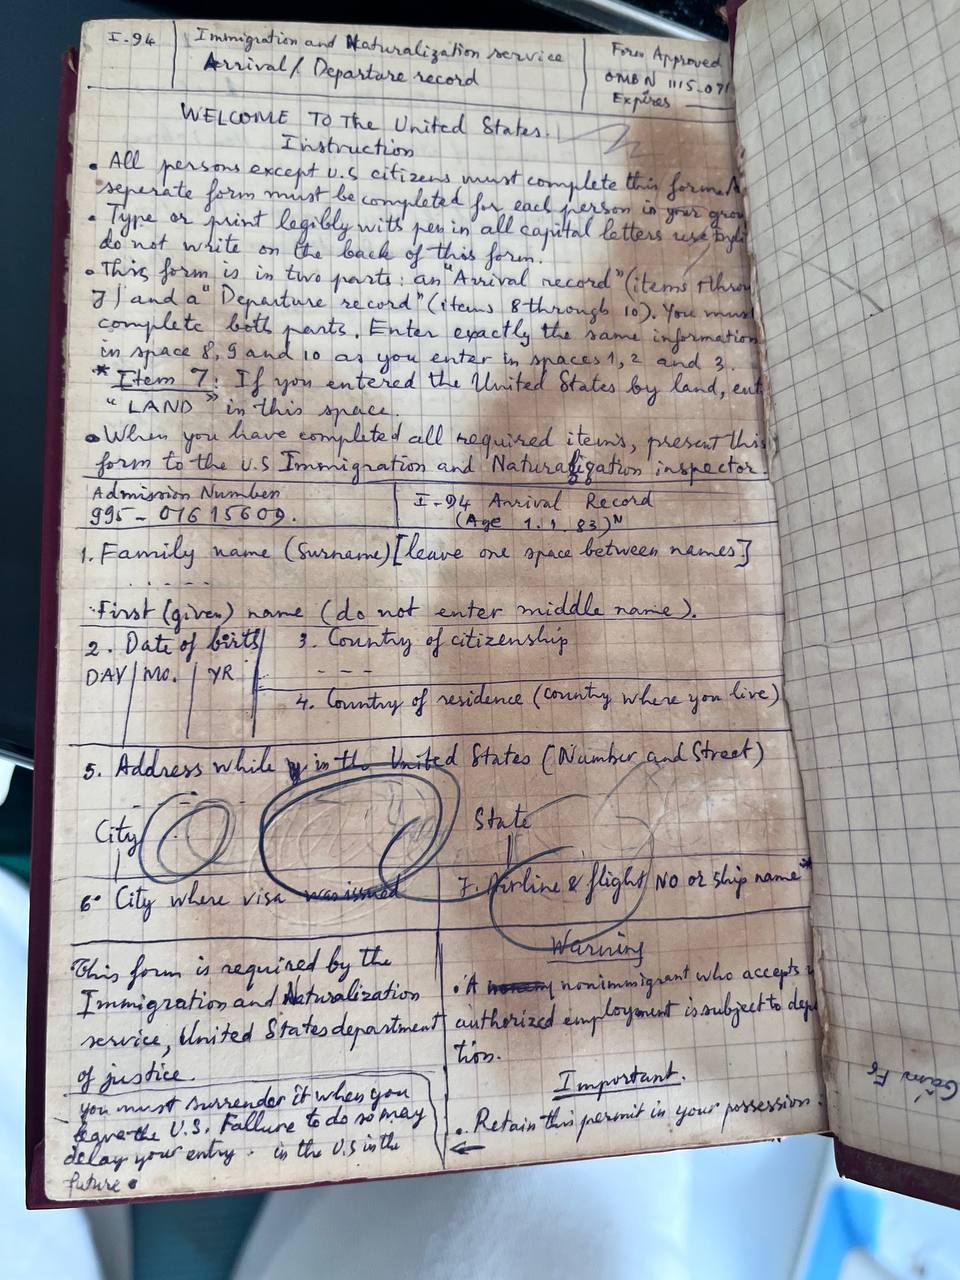 I-94
Immigration and Naturalization service
Arrival/Departure record
Form Approved
OMB N 1115-07
Expires
WELCOME TO The United States.
Instruction
• All persons except U.S citizens must complete this form. A
seperate form must be completed for each person in your grou
• Type or print legibly with pen in all capital letters use
do not write on the back of this form.
• This form is in two parts: an "Arrival record" (items 1 throu
7) and a "Departure record" (items 8 through 10). You must
complete both parts. Enter exactly the same information
in space 8, 9 and 10 as you enter in spaces 1, 2 and 3.
* Item 7: If you entered the United States by land, ent
"LAND" in this space.
• When you have completed all required items, present this
form to the U.S Immigration and Naturalization inspector.
Admission Number
995-07615609.
I-94 Arrival Record
(Age 1.1.83)N
1. Family name (Surname) [leave one space between names]
First (given) name (do not enter middle name).
2. Date of birth
3. Country of citizenship
DAY MO. YR
4. Country of residence (country where you live)
5. Address while in the United States (Number and Street)
City
State
6• City where visa was issued
7. Airline & flight NO or ship name*
This form is required by the
Immigration and Naturalization
service, United States department
of justice.
you must surrender it when you
leave the U.S. Failure to do so may
delay your entry. in the U.S in the
future•
Warning
• A nonimmigrant who accepts u
authorized employment is subject to depo
tion.
Important.
• Retain this permit in your possession.
←